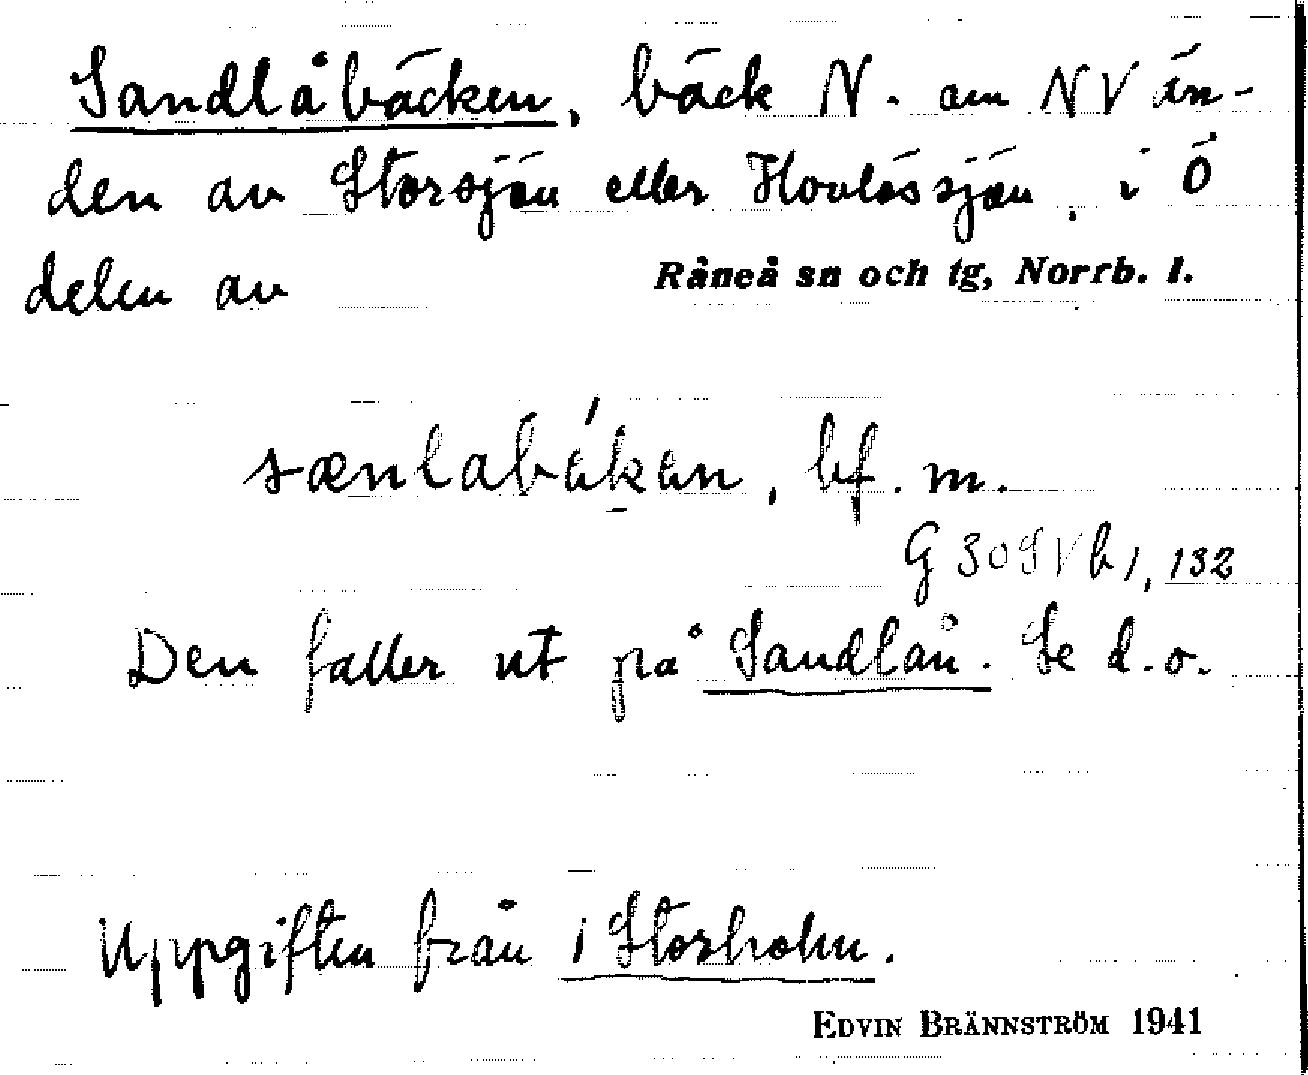 Sandlåbäcken, bäck N. om NV än-
den av Storsjön eller Hovlössjön, i Ö
delen av Råneå sn och tg, Norrb. l.
sænlabǻkan, bf. m.
G 309 V b 1, 132
Den faller ut på Sandlån. Se d.o.
Uppgiften från 1 Storholm.
EDVIN BRÄNNSTRÖM 1941